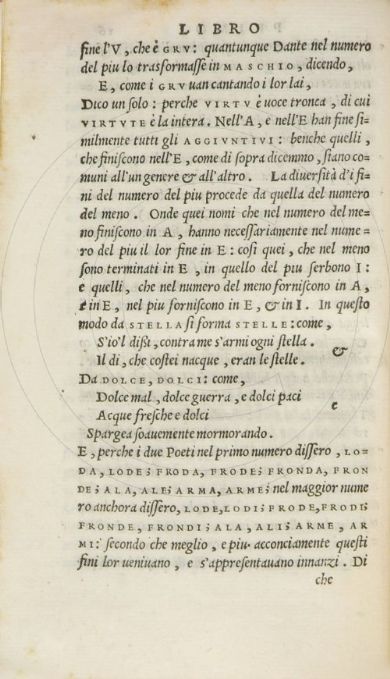 LIBRO
fine l'V, che è GRV: quantunque Dante nel numero
del piu lo trasformasse in MASCHIO, dicendo,
E, come i GRV uan cantando i lor lai,
Dico un solo: perche VIRTV è uoce tronca, di cui
VIRTVTE è la intera. Nell'A, e nell'E han fine si-
milmente tutti gli AGGIVNTIVI: benche quelli,
che finiscono nell'E, come di sopra dicemmo, siano co-
muni all'un genere & all'altro. La diuersità d'i fi-
ni del numero del piu procede da quella del numero
del meno. Onde quei nomi che nel numero del me-
no finiscono in A, hanno necessariamente nel nume-
ro del piu il lor fine in E: cosi quei, che nel meno
sono terminati in E, in quello del piu serbono I:
e quelli, che nel numero del meno forniscono in A,
e in E, nel piu forniscono in E, & in I. In questo
modo da STELLA si forma STELLE: come,
S'io'l dißi, contra me s'armi ogni stella.
&
Il di, che costei nacque, eran le stelle.
Da DOLCE, DOLCI: come,
Dolce mal, dolce guerra, e dolci paci
e
Acque fresche e dolci
Spargea soauemente mormorando.
E, perche i due Poeti nel primo numero dissero, LO-
DA, LODE; FRODA, FRODE; FRONDA, FRON
DE; ALA, ALE; ARMA, ARME; nel maggior nume
ro anchora dissero, LODE, LODI; FRODE, FRODI;
FRONDE, FRONDI; ALA, ALI; ARME, AR
MI: secondo che meglio, e piu acconciamente questi
fini lor ueniuano, e s'appresentauano innanzi. Di
che